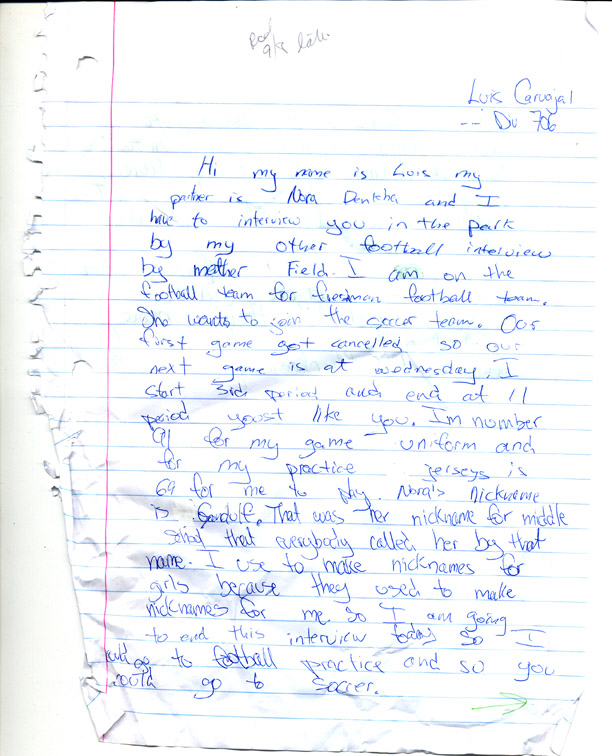 9/8 late
Luis Carvajal
-- Div 706
Hi my name is Luis my
partner is Nora Denkha and I
have to interview you in the park
by my other football interview
by mother Field. I am on the
football team for freshman football team.
She wants to join the soccer team. Our
first game got cancelled so our
next game is at wednesday. I
start 3rd period and end at 11
period youst like you. Im number
91 for my game uniform and
for my practice jerseys is
69 for me to play. Nora's Nickname
is That was her nickname for middle
school that everybody called her by that
name. I use to make nicknames for
girls because they used to make
nicknames for me. so I am going
to end this interview today so I
could go to football practice and so you
could go to soccer.